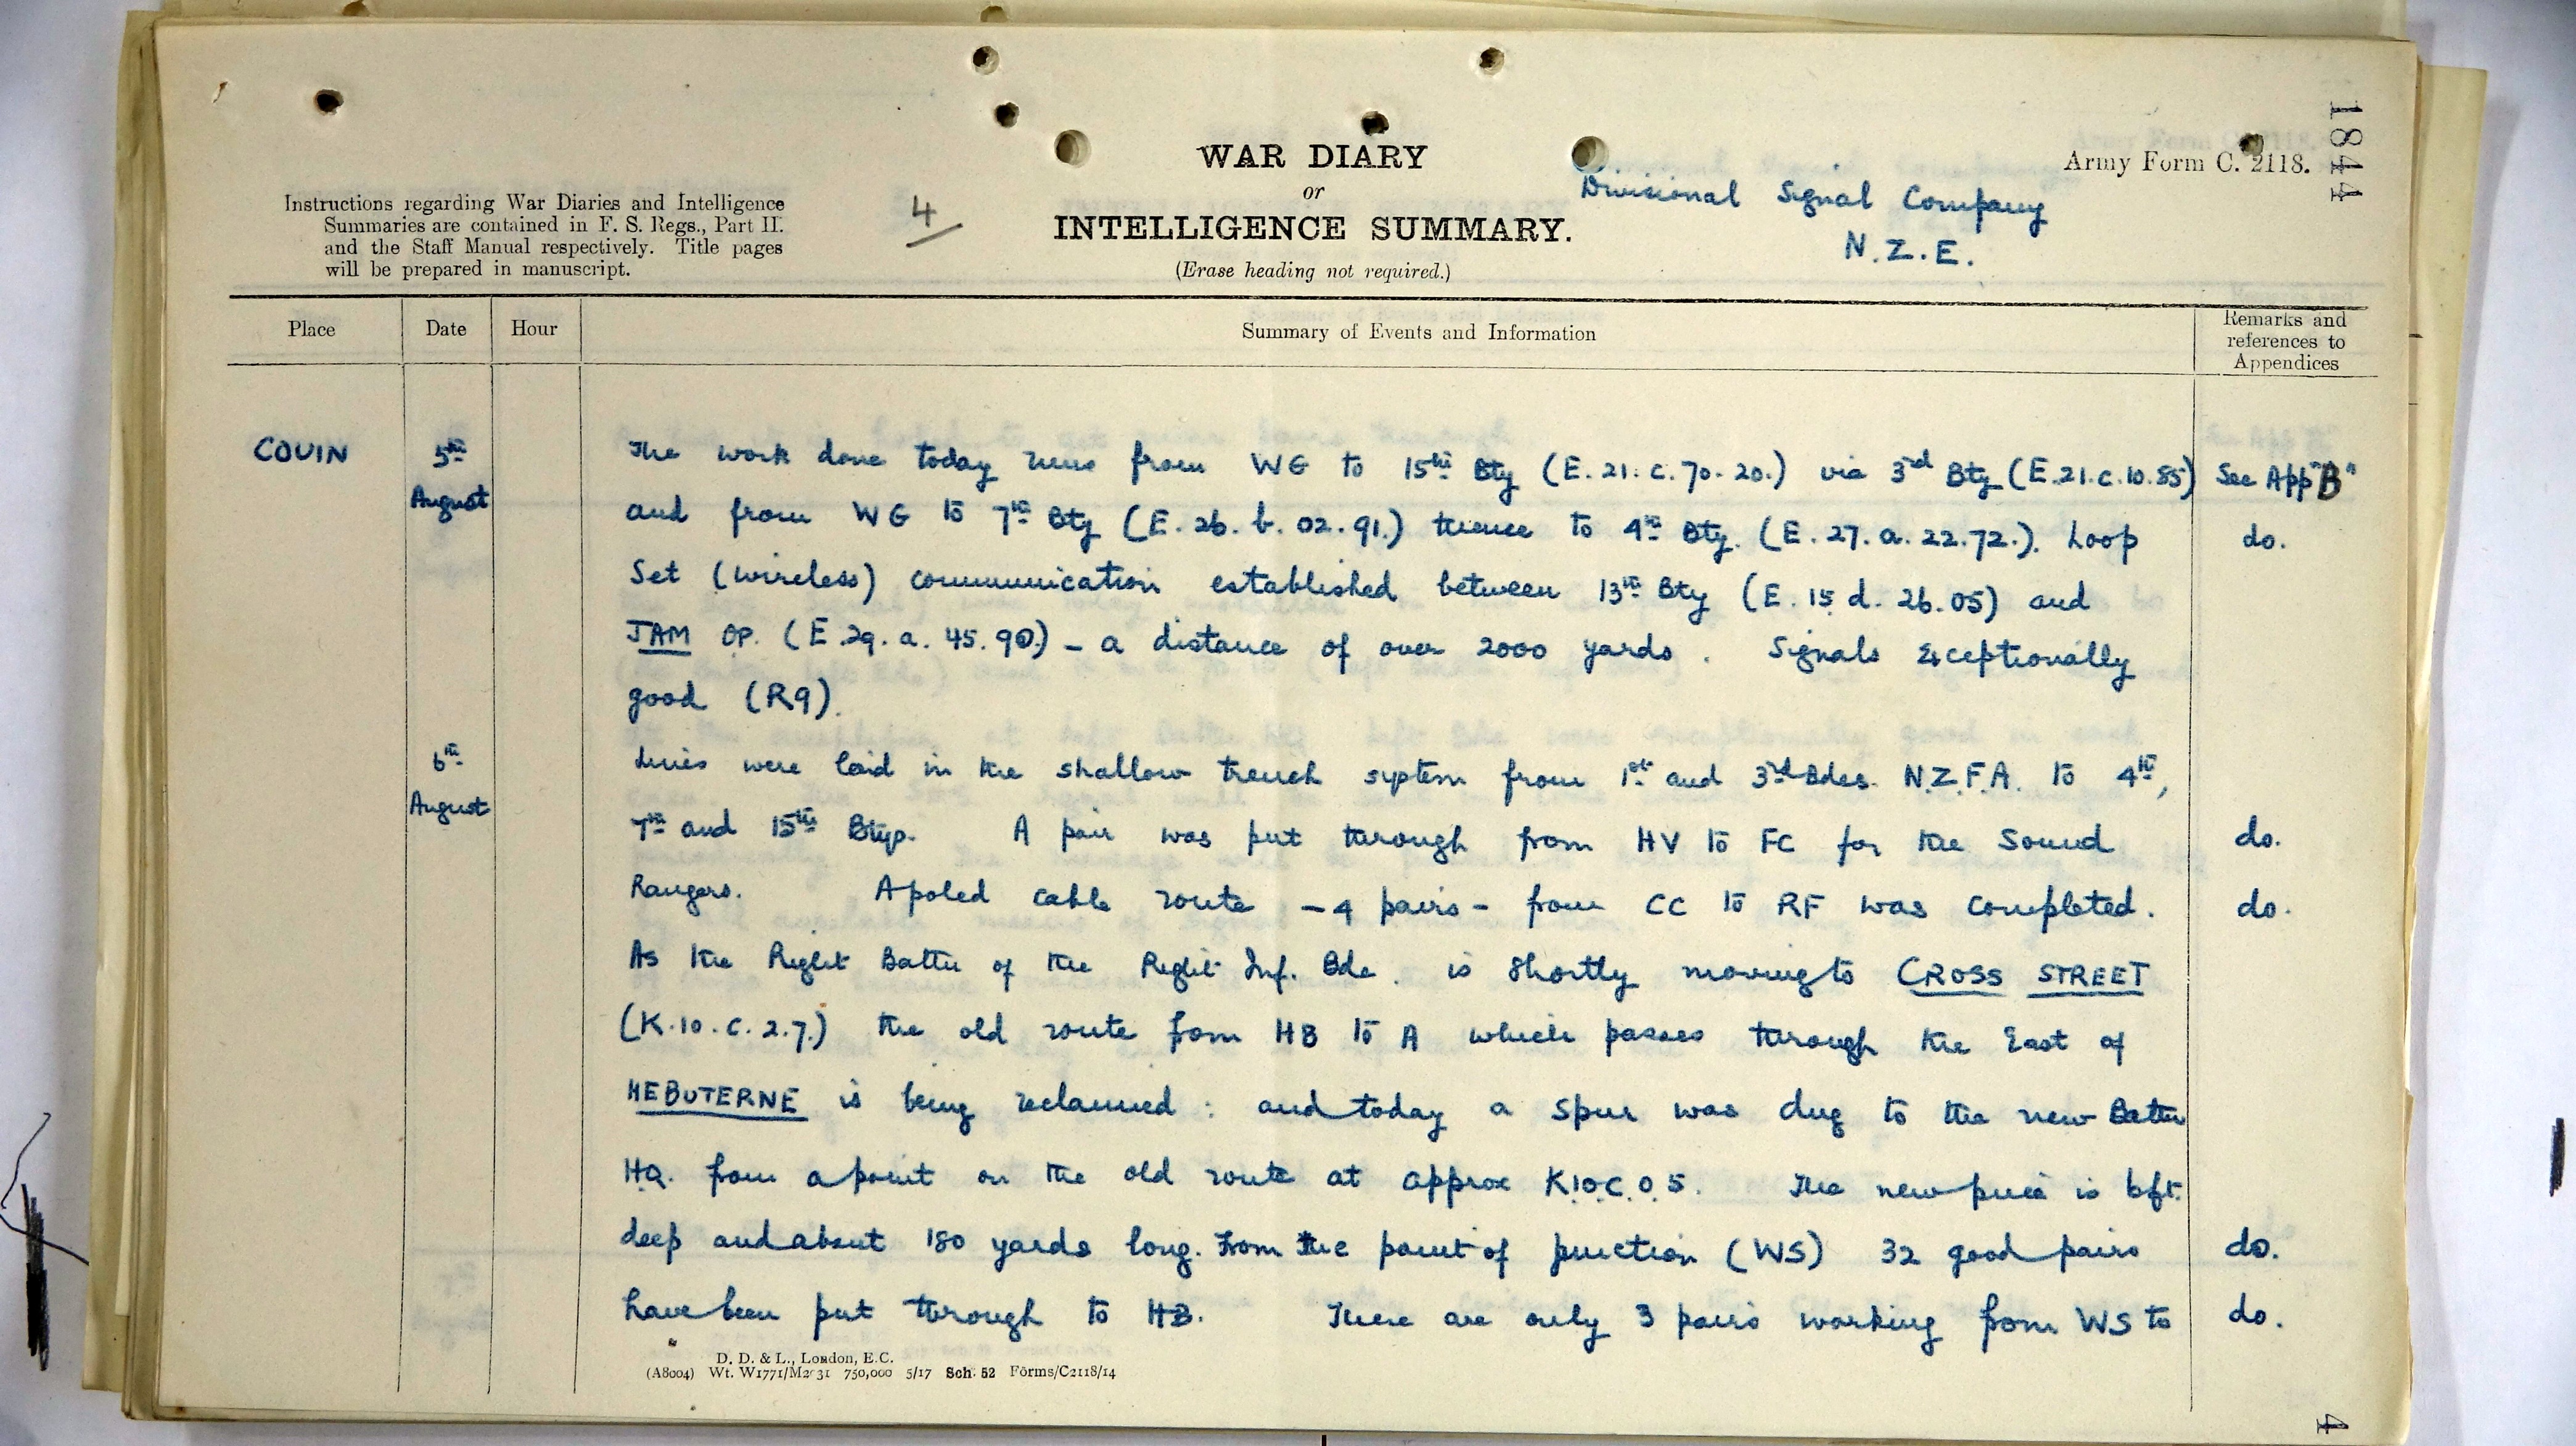 1844
WAR DIARY
or
INTELLIGENCE SUMMARY.
(Erase heading not required.)
Army Form C. 2118.
Divisional Signal Company
N.Z.E.
4
Instructions regarding War Diaries and Intelligence
Summaries are contained in F. S. Regs., Part II.
and the Staff Manual respectively. Title pages
will be prepared in manuscript.
Place Date Hour Summary of Events and Information Remarks and
references to
Appendices
COUIN 5th August
The work done today runs from WG to 15th Bty (E.21.c.70.20.) via 3rd Bty (E.21.c.10.85) See App "B"
and from WG to 7th Bty (E.26.b.02.91.) thence to 4th Bty. (E.27.a.22.72.). Loop do.
Set (wireless) communication established between 13th Bty (E.15.d.26.05) and
JAM OP. (E.29.a.45.90.) - a distance of over 2000 yards. Signals exceptionally
good (R9).
6th August
Lines were laid in the shallow trench system from 1st and 3rd Bdes. N.Z.F.A. to 4th,
7th and 15th Btys. A pair was put through from HV to FC for the Sound do.
Rangers. A poled cable route - 4 pairs - from CC to RF was completed. do.
As the Right Battn of the Right Inf. Bde. is shortly moving to CROSS STREET
(K.10.c.2.7.) the old route from HB to A which passes through the East of
HEBUTERNE is being reclaimed: and today a spur was dug to the new Battn
HQ. from a point on the old route at approx K.10.C.0.5. The new piece is 6ft.
deep and about 180 yards long. From the point of junction (WS) 32 good pairs do.
have been put through to HB. There are only 3 pairs working from WS to do.
D. D. & L., London, E.C.
(A8004) Wt. W1771/M2031 750,000 5/17 Sch. 52 Forms/C2118/14
4